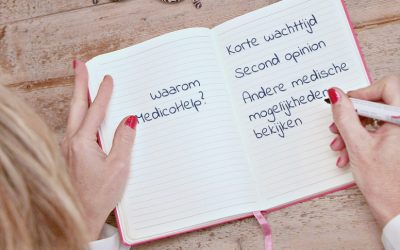 Waarom
MedicoHelp?
Korte wachttijd
Second opinion
Andere medische
mogelijkheden
bekijken